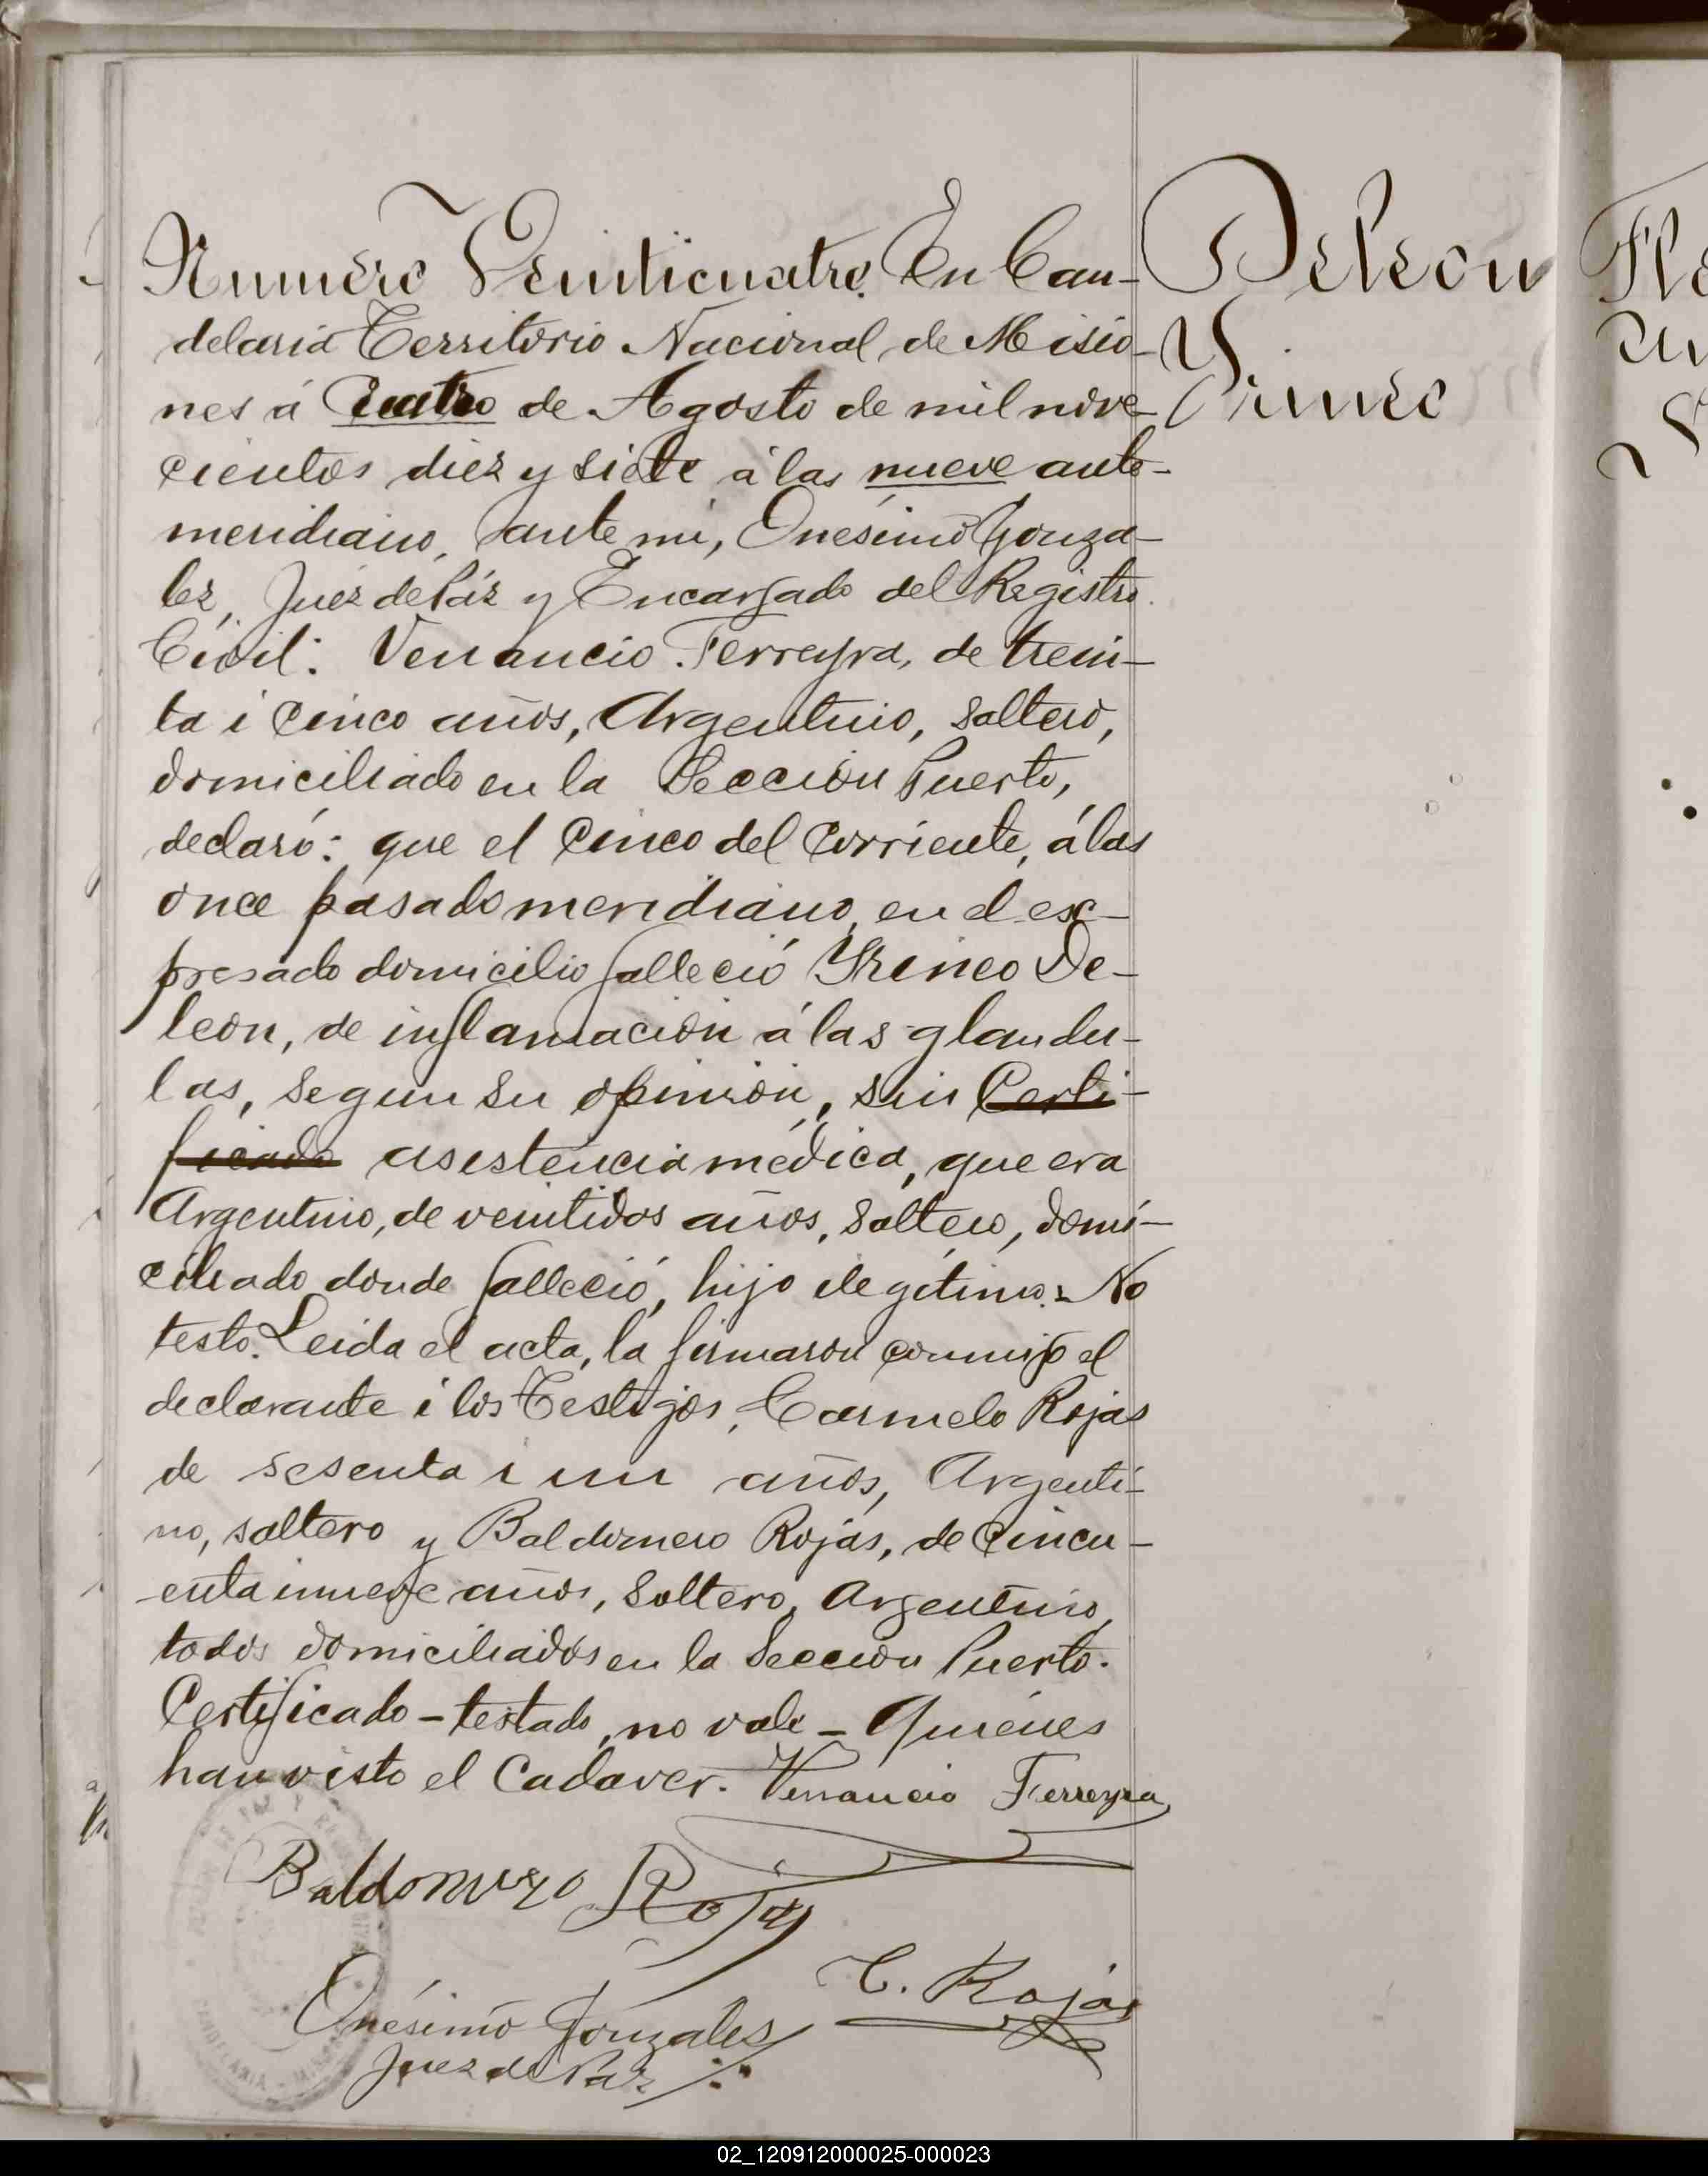 Numero Veinticuatro. En Can-
delaria Territorio Nacional de Misio-
nes á Cuatro de Agosto de mil nove-
cientos diez y siete á las nueve ante-
meridiano, ante mi, Onésimo Gonza-
lez, Juez de Páz y Encargado del Registro
Civil: Venancio Ferreyra, de trein-
ta i cinco años, Argentino, soltero,
domiciliado en la Sección Puerto,
declaró: que el cinco del corriente, á las
once pasado meridiano, en el esc-
presado domicilio falleció Yrineo De-
leon, de inflamación á las glandu-
las, segun su opinión, sin Certi-
ficado asistencia médica, que era
Argentino, de veintidos años, soltero, domi-
ciliado donde falleció, hijo ilegitimo. No
testo. Leida el acta, la firmaron conmigo el
declarante i los Testigos, Carmelo Rojas
de sesenta i un años, Argenti-
no, soltero y Baldomero Rojas, de cincu-
enta inueve años, soltero, Argentino,
todos domiciliados en la Sección Puerto.
Certificado - testado, no vale - Quiénes
han visto el cadaver. Venancio Ferreyra
Baldomero Rojas
C. Rojas
Onésimo Gonzales
Juez de Paz
Deleon
Yrineo
02_120912000025-000023